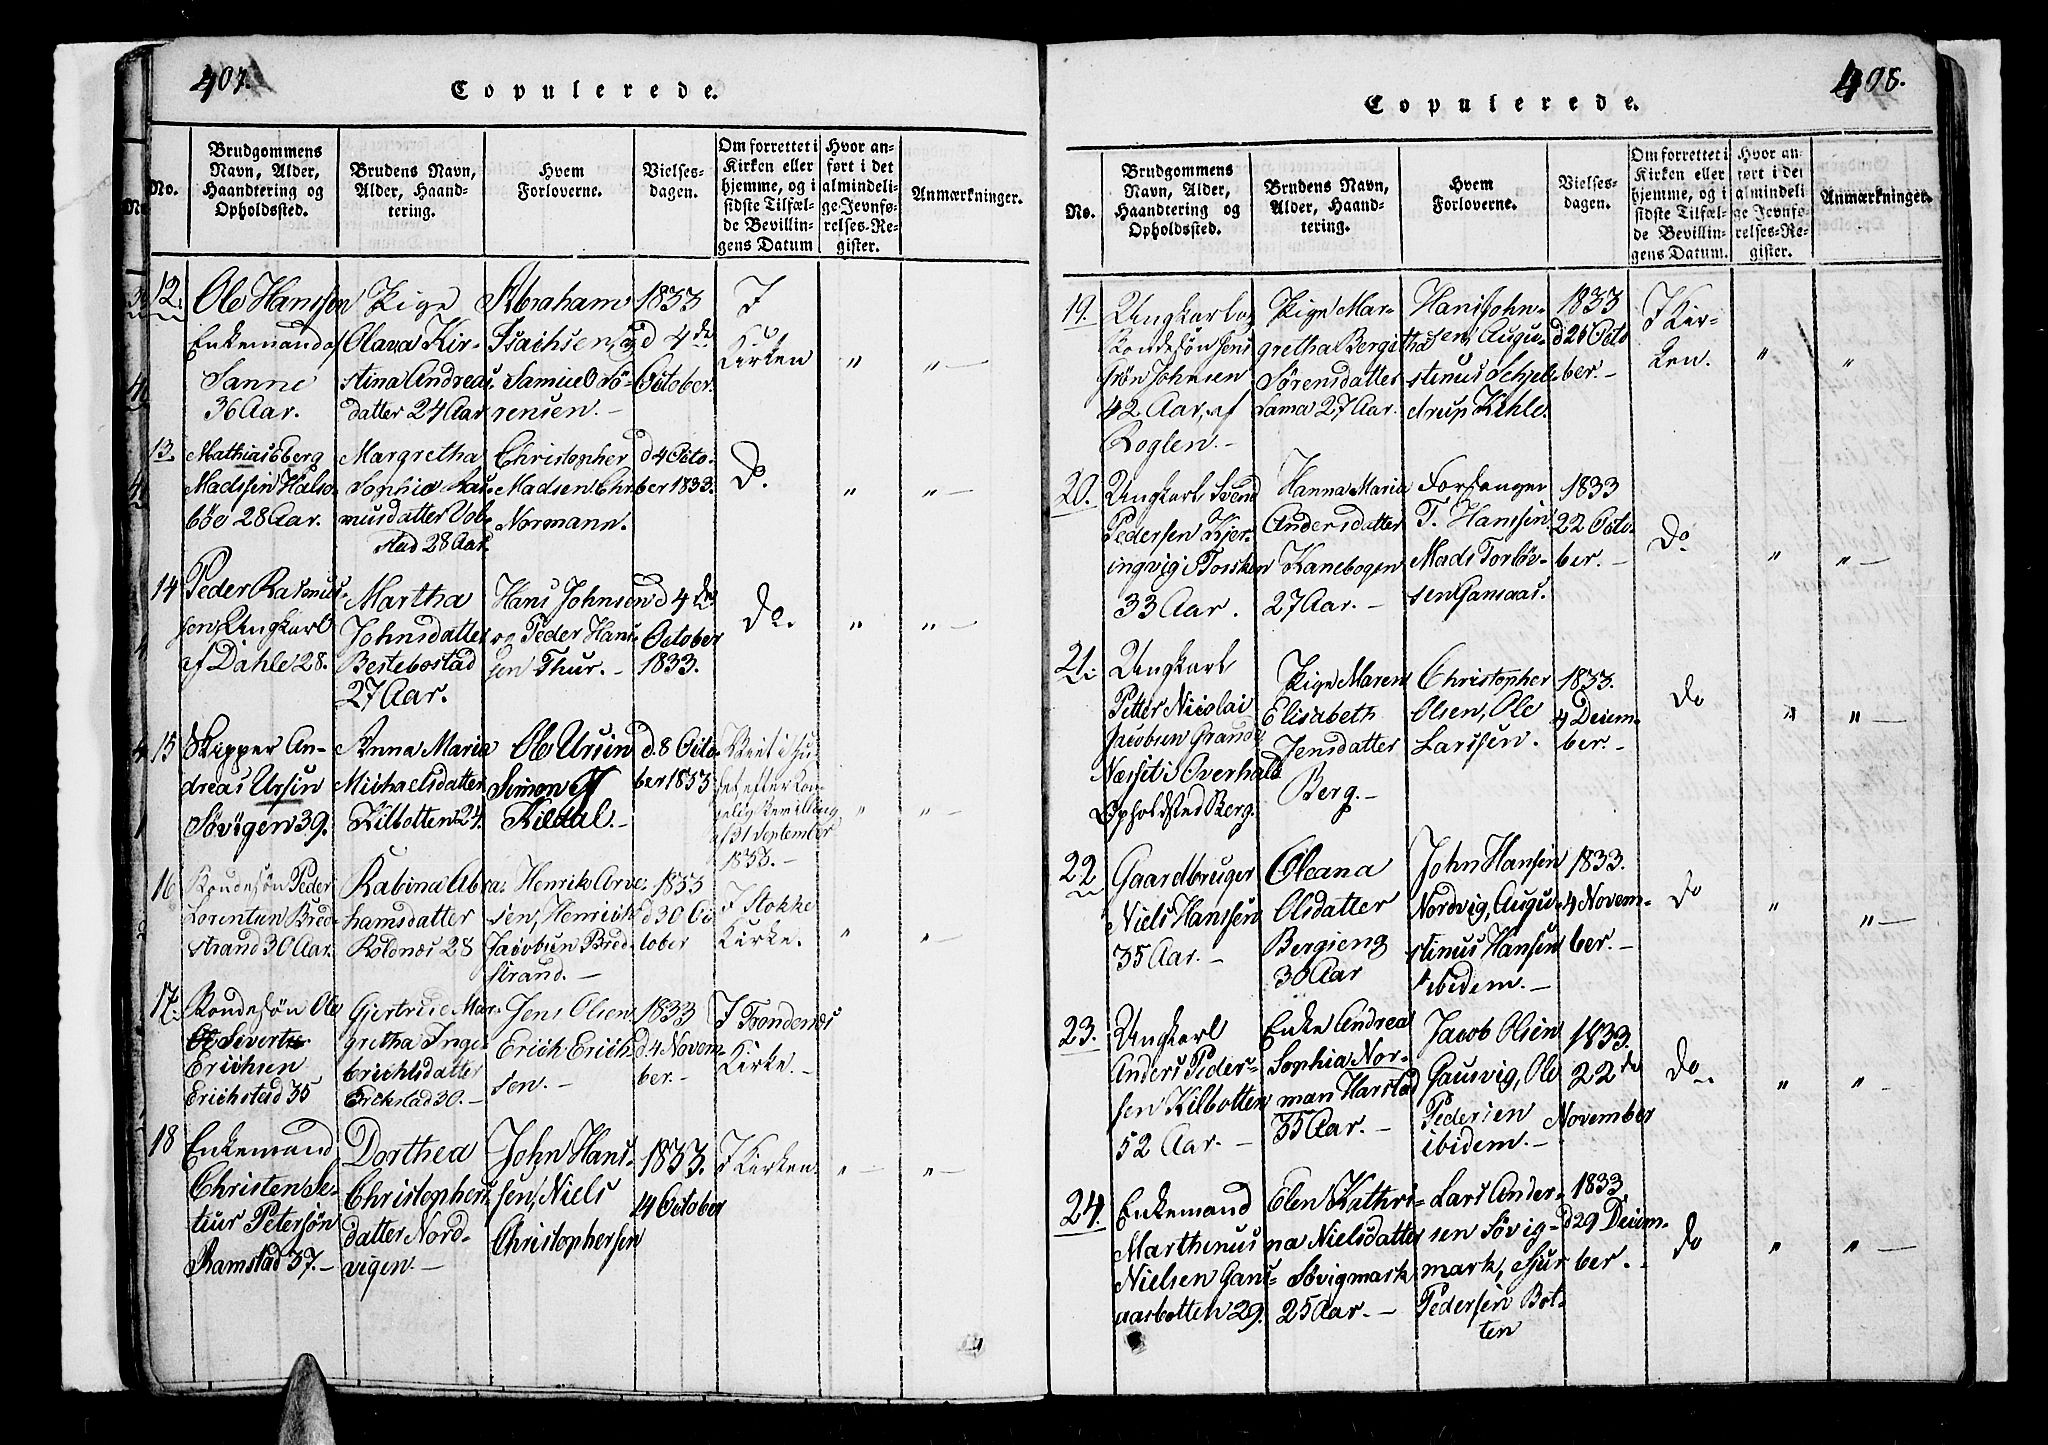 407.
Copulerede.
No.
Brudgommens
Navn, Alder,
Haandtering og
Opholdssted.
Brudens Navn,
Alder, Haand-
tering.
Hvem
Forloverne.
Vielses-
dagen.
Om forrettet i
Kirken eller
hjemme, og i
sidste Tilfæl-
de Bevillin-
gens Datum
Hvor an-
ført i det
almindeli-
ge Jevnfø-
relses-Re-
gister.
Anmærkninger.
12.
Ole Hanssen
Enkemand af
Sanne
36 Aar.
Pige
Olava Kir-
stina Andreas
datter 24 Aar
Abraham
Isachsen,
Samuel Sö-
rensen.
1833
d 4de
October.
I
Kirken
" "
13.
Mathias Eberg
Madssen Halse
böe 28 Aar.
Margretha
Sophia Ras-
musdatter Vol-
stad 28 Aar.
Christopher
Madsen Chr.
Normann.
d 4 Octo-
ber 1833.
Do.
" "
14
Peder Rasmus-
sen Ungkarl
af Dahle 28.
Martha
Johnsdatter
Bestebostad
27 Aar.
Hans Johnsen
og Peder Hans-
sen Thur.
d 4de
October
1833.
Do.
" "
15
Skipper An-
dreas Ursin
Sövigen 39.
Anna Maria
Michaelsdatter
Kilbotten 24.
Ole Ursin
Simon
Kildal.
d. 8 Octo-
ber 1833
Viet i Hu-
set efter Kon-
gelig Bevilling
af 31 September
1833.
" "
16
Bondesön Peder
Lorentsen Bred-
strand 30 Aar.
Rabina Abra-
hamsdatter
Roldnæs 28
Henrik Arve-
sen, Henrich
Jacobsen Bred-
strand.
1833
d 30 Oc
tober
I Stokke
Kirke.
" "
17.
Bondesön Ole
Sivert
Erichsen
Erichstad 35
Giertrud Mar-
gretha Inge-
brichtsdatter
Erikstad 30.
Jens Olsen
Erich Erich-
sen.
1833
d. 4 Novem-
ber.
I Trondenæs
Kirke.
18
Enkemand
Christen Se-
tiur Petersön
Ramstad 37.
Dorthea
Christophers
datter Nord-
vigen.
John Hans-
sen, Niels
Christophersen
1833.
14 October
I Kirken.
" "
408.
Copulerede.
No.
Brudgommens
Navn, Alder,
Haandtering og
Opholdssted.
Brudens Navn,
Alder, Haand-
tering.
Hvem
Forloverne.
Vielses-
dagen.
Om forrettet i
Kirken eller
hjemme, og i
sidste Tilfæl-
de Bevillin-
gens Datum.
Hvor an-
ført i det
almindeli-
ge Jevnfø-
relses-Re-
gister.
Anmærkninger.
19.
Ungkarl og
Bondesön Jens
Johnsen
42 Aar, af
Roglen.
Pige Mar-
gretha Bergitha
Sörensdatter
Sama 27 Aar.
Hans John-
sen, Augu-
stinus Schjel-
drup Kihle.
1833
d 26 Octo
ber.
I Kir-
ken.
" "
20.
Ungkarl Svend
Pedersen Kjer-
ingvig i Torsken
33 Aar.
Hanna Maria
Andersdatter
Kanebogen
27 Aar.
Forsanger
T. Hanssen
Mads Torlöv-
sen Gansaas.
1833
22 Octo-
ber.
Do
" "
21.
Ungkarl
Petter Nicolai
Jacobsen Grande
Næsset i Overhald
Opholdsted Berg.
Pige Maren
Elisabeth
Jensdatter
Berg.
Christopher
Olsen, Ole
Larssen.
1833.
4 Decem-
ber.
Do
" "
22
Gaardbruger
Niels Hanssen
35 Aar.
Oleana
Olsdatter
Bergieng
30 Aar
John Hansen
Nordvig, Augu-
stinus Hansen
ibidem.
1833.
4 Novem-
ber.
Do
" "
23.
Ungkarl
Anders Peder-
sen Kilbotten
52 Aar.
Enke Andrea
Sophia Nor-
man Harstad
35 Aar.
Jacob Olsen
Gausvig, Ole
Pedersen
ibidem.
1833.
22de
November
Do
" "
24.
Enkemand
Marthinus
Nielsen Gans-
aasbotten 29.
Elen Kathri-
na Nielsdatter
Sövigmark
25 Aar.
Lars Ander-
sen Sövig-
mark, Sjur
Pedersen Bot-
ten
1833
d 29 Decem-
ber.
Do
" "